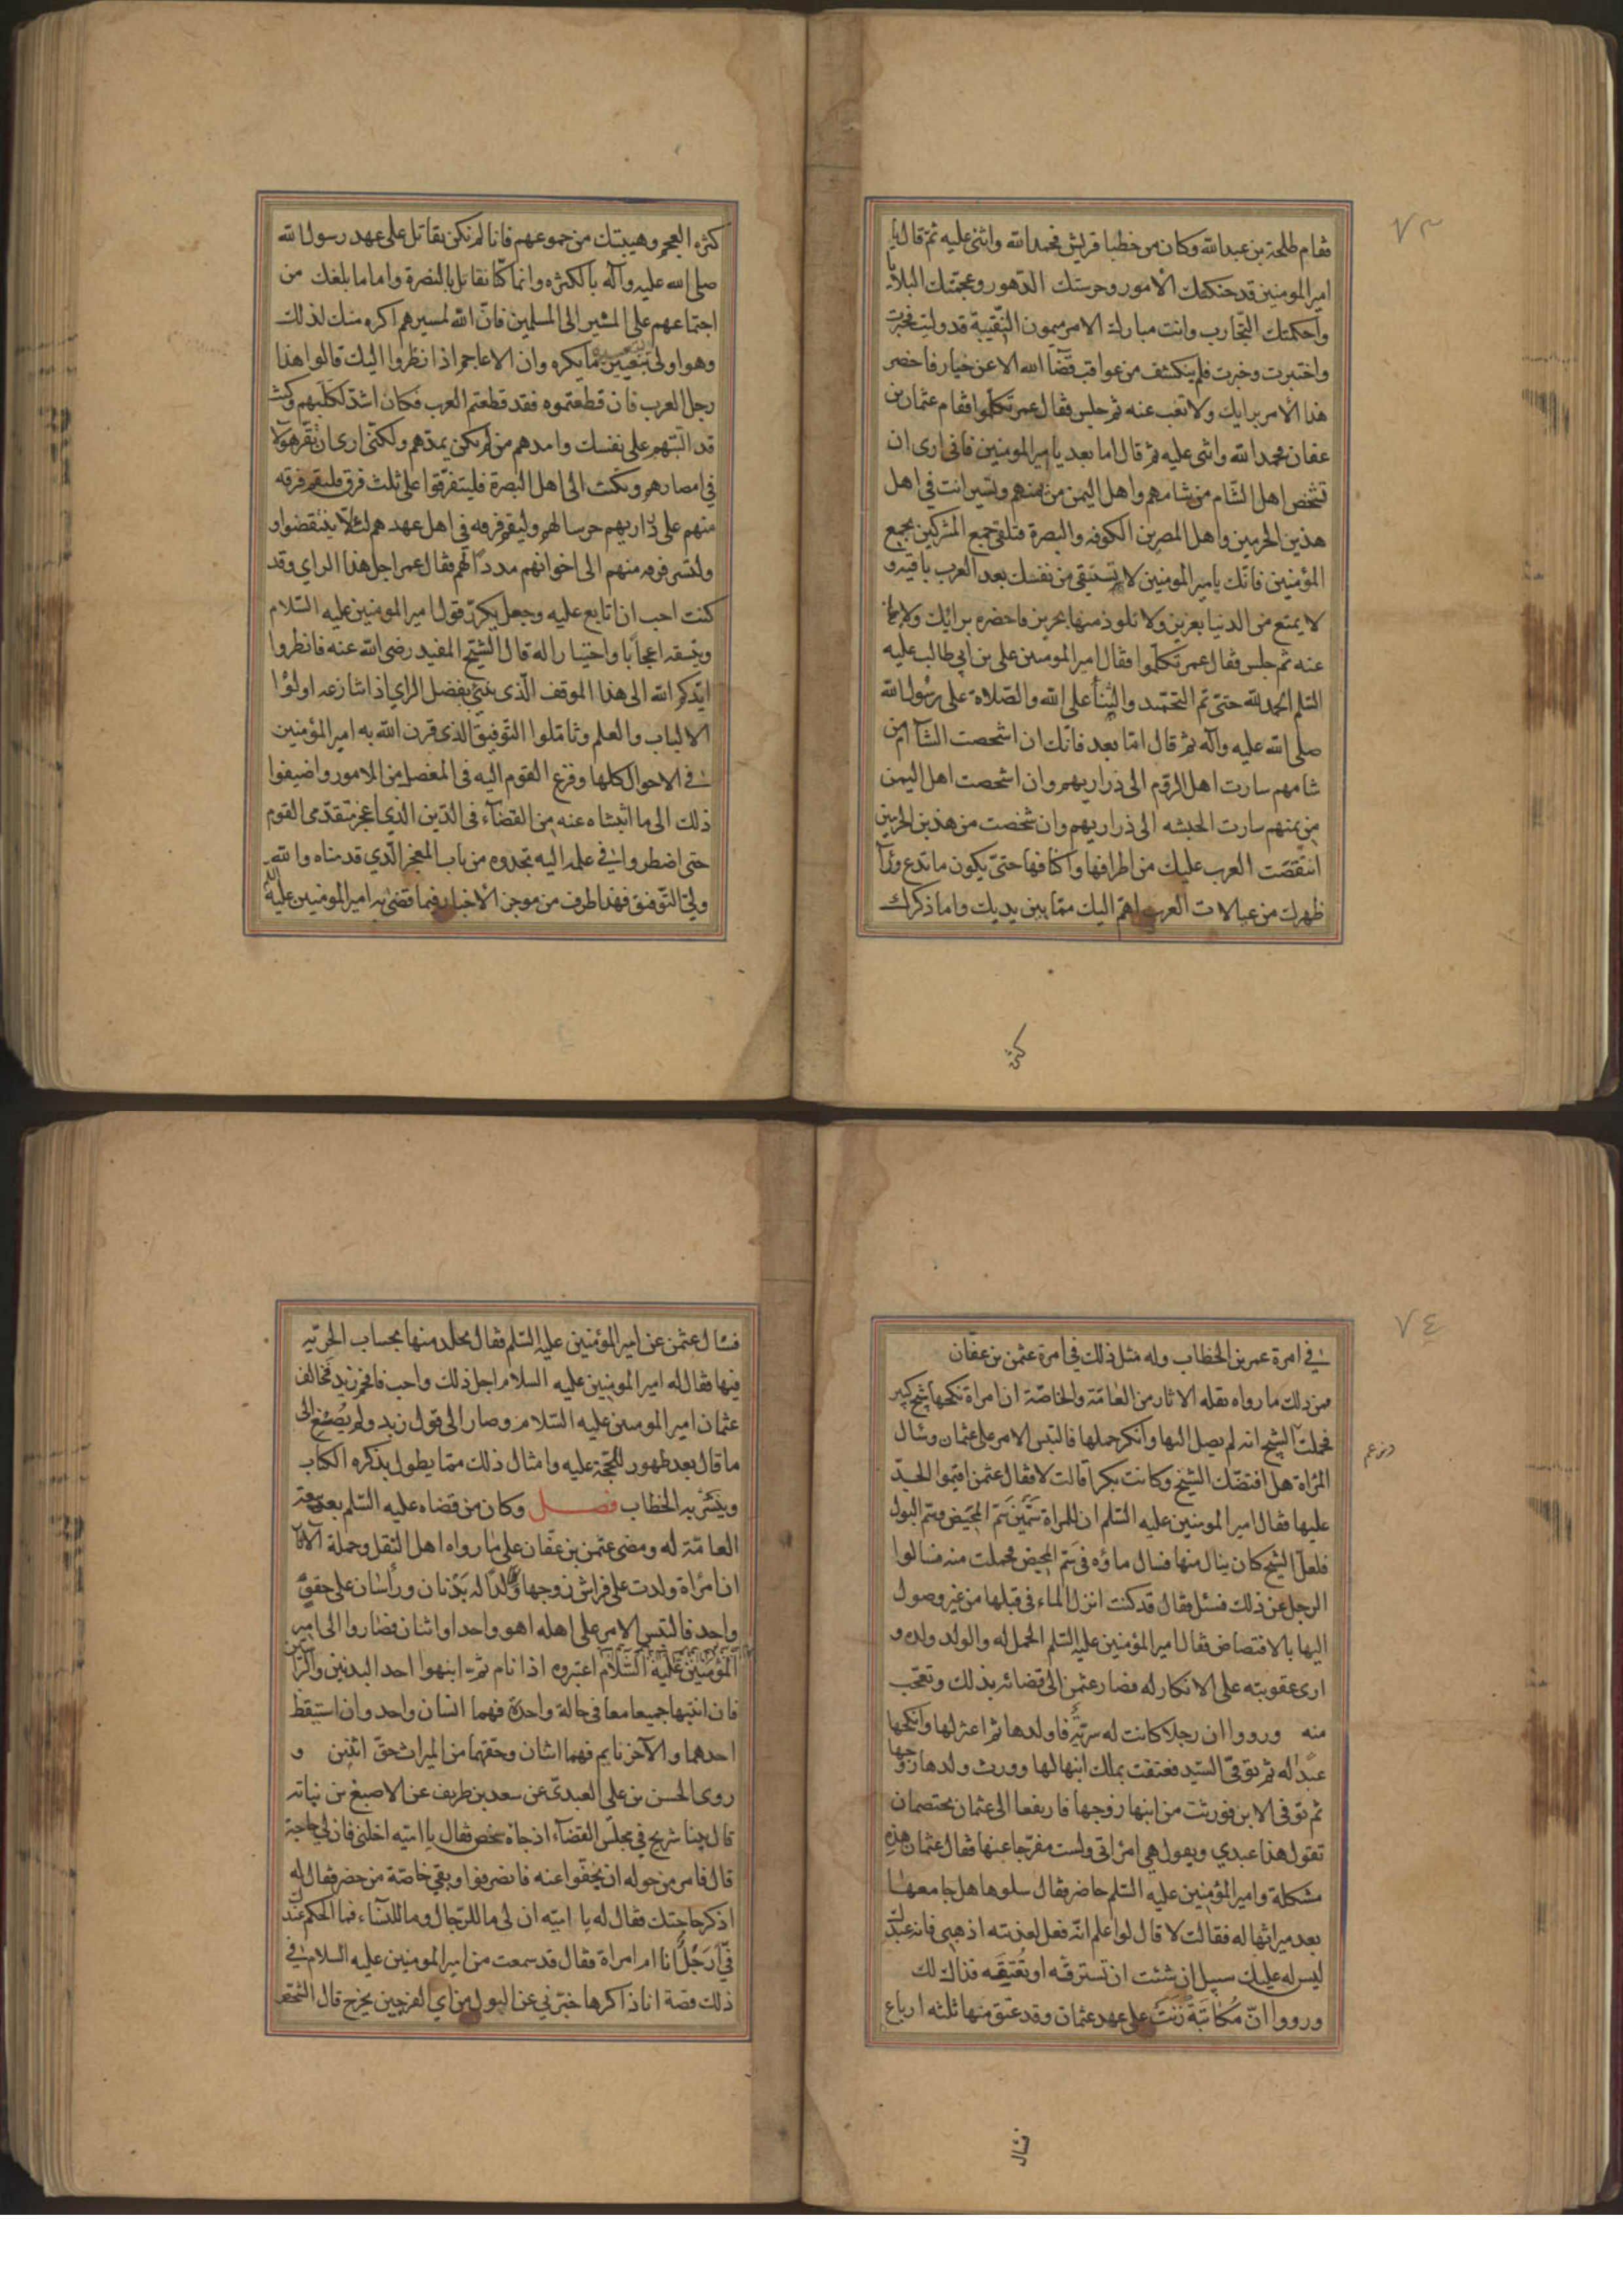 ٧٣
فقام طلحة بن عبدالله وكان من خطبا قريش فحمدالله واثنى عليه ثم قال يا
امير المومنين قد حنكتك الأمور وحرستك الدهور وعجمتك البلايا
واحكمتك التجارب وانت مبارك الامر ميمون النقيبة قد وليت فخبرت
واختبرت وخبرت فلم ينكشف من عواقب قضآ الله الا عن خيار فاحضر
هذا الأمر برايك ولا تغب عنه ثم جلس فقال عمر تكلموا فقام عثمان بن
عفان فحمد الله واثنى عليه ثم قال اما بعد يا امير المومنين فانى ارى ان
تشخص اهل الشام من شامهم واهل اليمن من يمنهم وتسير انت في اهل
هذين الحرمين واهل المصرين الكوفه والبصرة فتلقى جمع المشركين بجمع
المؤمنين فانك يا امير المومنين لا تستبقى من نفسك بعد العرب باقية و
لا يمتع من الدنيا بعزيز ولا تلوذ منها بحريز فاحضره برائك ولا تغب
عنه ثم جلس فقال عمر تكلموا فقال امير المومنين على بن ابي طالب عليه
السلم الحمد لله حتى تم التحميد والثنآ على الله والصلاة على رسول الله
صلى الله عليه وآله ثم قال امّا بعد فانك ان اشخصت الشآم من
شامهم سارت اهل الروم الى ذراريهم وان اشخصت اهل اليمن
من يمنهم سارت الحبشه الى ذراريهم وان شخصت من هذين الحرمين
انتقضت العرب عليك من اطرافها واكنافها حتى يكون ما تدع ورآ
ظهرك من عيالات العرب اهم اليك مما بين يديك واما ذكرك
كثره
كثره العجم وهيبتك من جموعهم فانا لم نكن نقاتل على عهد رسول الله
صلى الله عليه وآله بالكثره وانما كنا نقاتل بالنصرة واما ما بلغك من
اجتماعهم على المسير الى المسلمين فان الله لمسيرهم اكره منك لذلك
وهو اولى بتغيير ما يكره وان الاعاجم اذا نظروا اليك قالوا هذا
رجل العرب فان قطعتموه فقد قطعتم العرب فكان اشد لكلبهم وكنت
قد البتهم على نفسك وامدهم من لم يكن يمدهم ولكنى ارى ان تقر هولآ
في امصارهم وتكتب الى اهل البصرة فليتفرقوا على ثلث فرق فليقم فرقه
منهم على ذراريهم حرسا لهم وليقم فرقه في اهل عهدهم لئلا ينتقضوا و
ولتسر فرقه منهم الى اخوانهم مددا لهم فقال عمر اجل هذا الراي وقد
كنت احب ان اتابع عليه وجعل يكرر قول امير المومنين عليه السلام
وينسقه اعجابا واختيارا له قال الشيخ المفيد رضى الله عنه فانظروا
ايدكم الله الى هذا الموقف الذى ينبئ بفضل الراي اذ تنازعه اولوا
الالباب والعلم وتاملوا التوفيق الذى قرن الله به امير المؤمنين
في الاحوال كلها وفزع القوم اليه في المعضل من الامور واضيفوا
ذلك الى ما اثبتناه عنه من القضآء في الدين الذي اعجز متقدمى القوم
حتى اضطروا في علمه اليه تجدوه من باب المعجز الذي قدمناه والله
ولى التوفيق فهذا طرف من موجز الأخبار فيما قضى به امير المومنين عليه السلم
٧٤
في امرة عمر بن الخطاب وله مثل ذلك في امرة عثمن بن عفان
فمن ذلك ما رواه نقله الاثار من العامّة والخاصّة ان امراة نكحها شيخ كبير
فحملت الشيخ انه لم يصل اليها وانكر حملها فالتبس الامر على عثمان وسال
وزعم
المراة هل افتضك الشيخ وكانت بكرا قالت لا فقال عثمن اقيموا الحد
عليها فقال امير المومنين عليه السلم ان للمراة سمين سم المحيض وسم البول
فلعل الشيخ كان ينال منها فسال ماؤه في سم المحيض فحملت منه فسالوا
الرجل عن ذلك فسئل فقال قد كنت انزل الماء في قبلها من غير وصول
اليها بالافتضاض فقال امير المؤمنين عليه السلم الحمل له والولد ولده و
ارى عقوبته على الانكار له فصار عثمن الى قضائه بذلك وتعجب
منه ورووا ان رجلا كانت له سرية فاولدها ثم اعتزلها وانكحها
عبدا له ثم توفى السيد فعتقت بملك ابنها لها وورث ولدها زوجها
ثم توفى الابن فورثت من ابنها زوجها فارتفعا الى عثمان يختصمان
تقول هذا عبدي ويقول هي امراتى ولست مفرجا عنها فقال عثمان هذه
مشكلة وامير المؤمنين عليه السلم حاضر فقال سلوها هل جامعها
بعد ميراثها له فقالت لا قال لو اعلم انه فعل لعذبته اذهبي فانه عبدك
ليس له عليك سبيل ان شئت ان تسترقه او تعتقه فذاك لك
ورووا ان مُكاتبة زنت على عهد عثمان وقد عتق منها ثلثه ارباع
فسال
فسال عثمن عن امير المؤمنين عليه السلم فقال يجلد منها بحساب الحرية
فيها فقال له امير المومنين عليه السلام اجل ذلك واحب فافحم زيد فخالف
عثمان امير المومنين عليه السلام وصار الى قول زيد ولم يُصْغ الى
ما قال بعد ظهور الحجة عليه وامثال ذلك مما يطول بذكره الكتاب
وينتشر به الخطاب فصل وكان من قضاه عليه السلم بعد بيعة
العامّة له ومضى عثمن بن عفان على ما رواه اهل النقل وحملة الاثآ
ان امرأة ولدت على فراش زوجها ولدا له بدنان ورأسان على حقو
واحد فالتبس الامر على اهله اهو واحد او اثنان فصاروا الى امير
المؤمنين عليه السلام اعتبروه اذا نام ثم انبهوا احد البدنين والراسين
فان انتبها جميعا معا في حالة واحدة فهما انسان واحد وان استيقظ
احدهما والآخر نايم فهما اثنان وحقهما من الميراث حق اثنين و
روى الحسن بن على العبدى عن سعد بن طريف عن الاصبغ بن نباته
قال بينا شريح في مجلس القضآء اذ جاه شخص فقال يا امية اخلنى فان لي حاجة
قال فامر من حوله ان يخفوا عنه فانصرفوا وبقي خاصّة من حضر فقال له
اذكر حاجتك فقال له يا امية ان لى ما للرجال وما للنساء فما الحكم عندك
فّى أرجُل انا ام امراة فقال قد سمعت من امير المومنين عليه السلام في
ذلك قصة انا ذاكرها خبرني عن البول من اي الفرجين يخرج قال الشخص